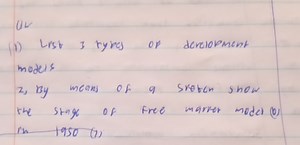 (1) List 3 types of development
models
2, By means of a sketch show
the stage of free market model (6)
in 1950 (7)